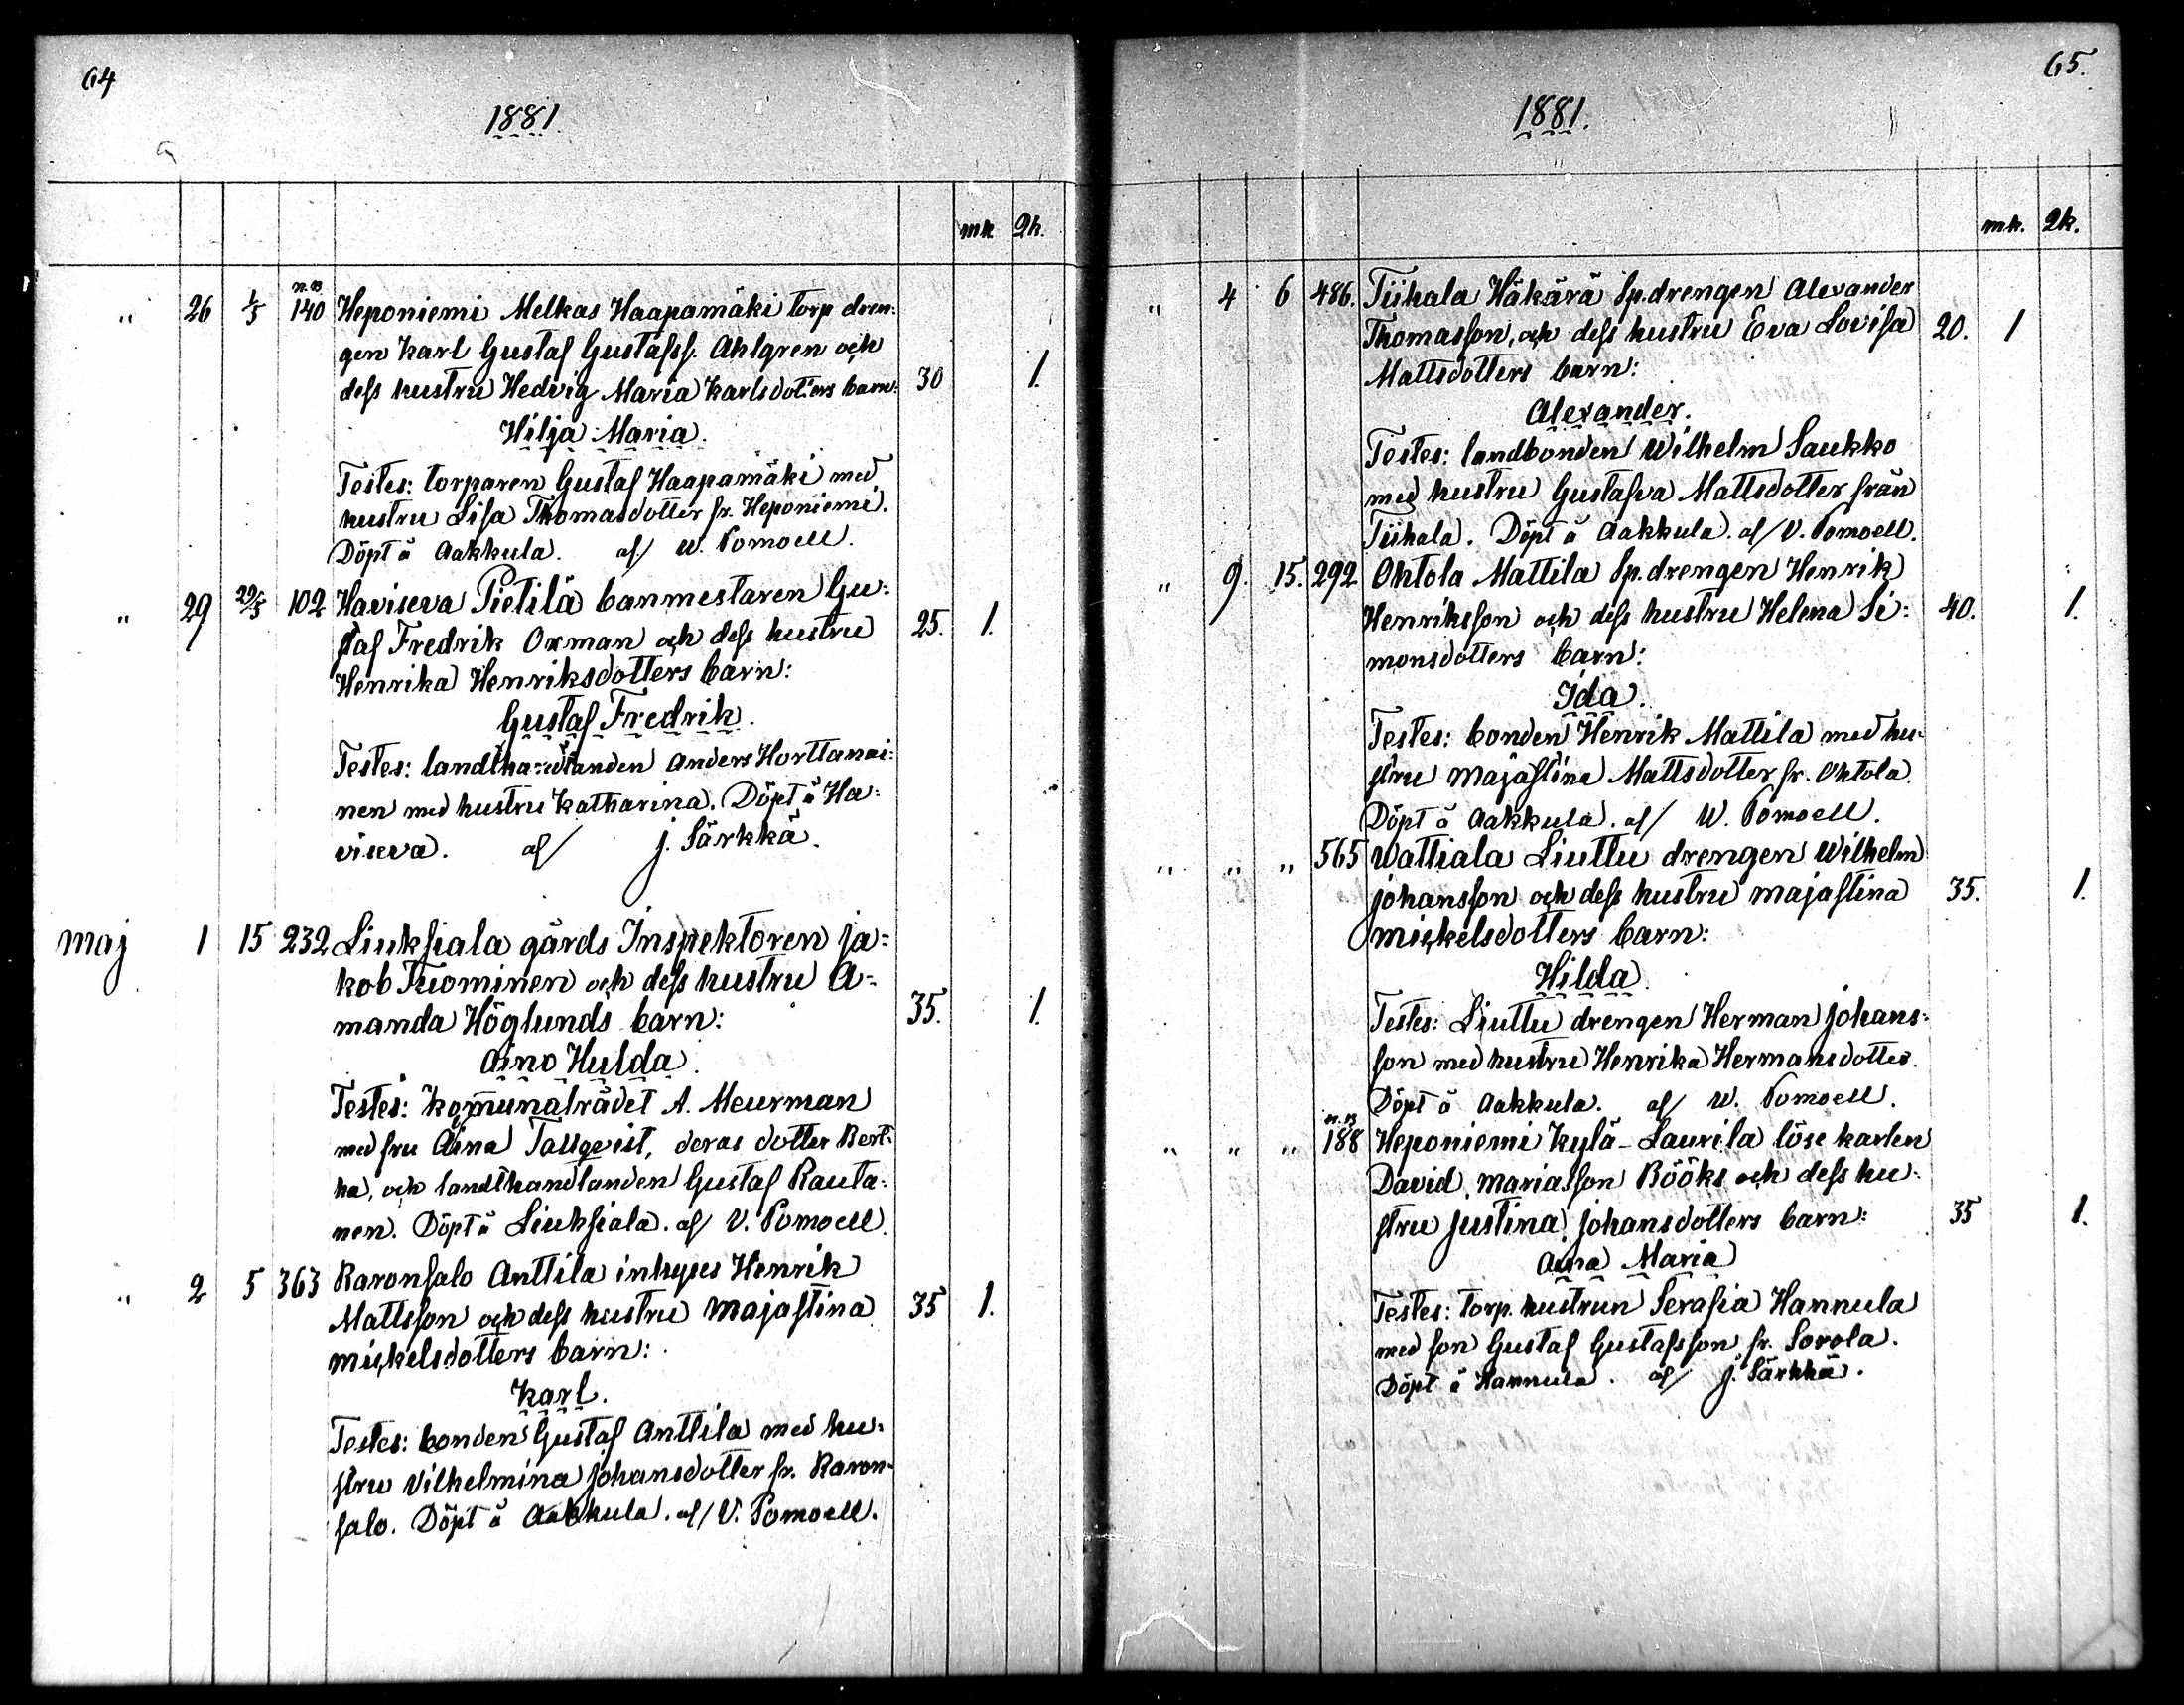 64
1881.
mk. Qk.
" 26 1/5 n. B. 140 Heponiemi Melkas Haapamäki torp dren=
gen Karl Gustaf Gustafss. Ahlgren och
dess hustru Hedvig Maria Karlsdotters barn: 30 1.
Hilja Maria.
Testes: torparen Gustaf Haapamäki med
hustru Lisa Thomasdotter fr. Heponiemi.
Döpt å Aakkula. af/ W. Pomoell.
" 29 29/5 102 Haviseva Pietilä banmestaren Gu=
staf Fredrik Oxman och dess hustru 25. 1.
Henrika Henriksdotters barn:
Gustaf Fredrik.
Testes: landthandlanden Anders Horttanai=
nen med hustru Katharina. Döpt å Ha=
viseva. af/ J. Särkkä.
Maj 1 15 232 Liuksiala gårds Inspektoren Ja=
kob Tuominen och dess hustru A=
manda Höglunds barn: 35. 1.
Aino Hulda.
Testes: Kommunalrådet A. Meurman
med fru Aina Tallqvist, deras dotter Bert=
ha, och landthandlanden Gustaf Rauta=
nen. Döpt å Liuksiala. af/ V. Pomoell.
" 2 5 363 Raronsalo Anttila inhyses Henrik
Mattsson och dess hustru Majastina 35 1.
Mickelsdotters barn:
Karl.
Testes: bonden Gustaf Anttila med hu=
stru Vilhelmina Johansdotter fr. Raron=
salo. Döpt å Aakkula. af/ V. Pomoell.
65.
1881.
mk. Qk.
" 4 6 486. Tiihala Häkärä Sp.drengen Alexander
Thomasson, och dess hustru Eva Lovisa 20. 1
Mattsdotters barn:
Alexander.
Testes: landbonden Wilhelm Saukko
med hustru Gustafva Mattsdotter från
Tiihala. Döpt å Aakkula. af/ V. Pomoell.
" 9. 15. 292 Ohtola Mattila Sp.drengen Henrik
Henriksson och dess hustru Helena Si= 40. 1.
monsdotters barn:
Ida.
Testes: bonden Henrik Mattila med hu=
stru Majastina Mattsdotter fr. Ohtola.
Döpt å Aakkula. af/ W. Pomoell.
" " " 565 Wattiala Liuttu drengen Wilhelm
Johansson och dess hustru Majastina 35. 1.
Mickelsdotters barn:
Hilda.
Testes: Liuttu drengen Herman Johans=
son med hustru Henrika Hermansdotter.
Döpt å Aakkula. af/ W. Pomoell.
" " " n. B. 188 Heponiemi Kylä-Laurila löse karlen
David Mariasson Bööks och dess hu=
stru Justina Johansdotters barn: 35 1.
Aina Maria
Testes: torp. hustrun Serafia Hannula
med son Gustaf Gustafsson fr. Sorola.
Döpt å Hannula. af/ J. Särkkä.